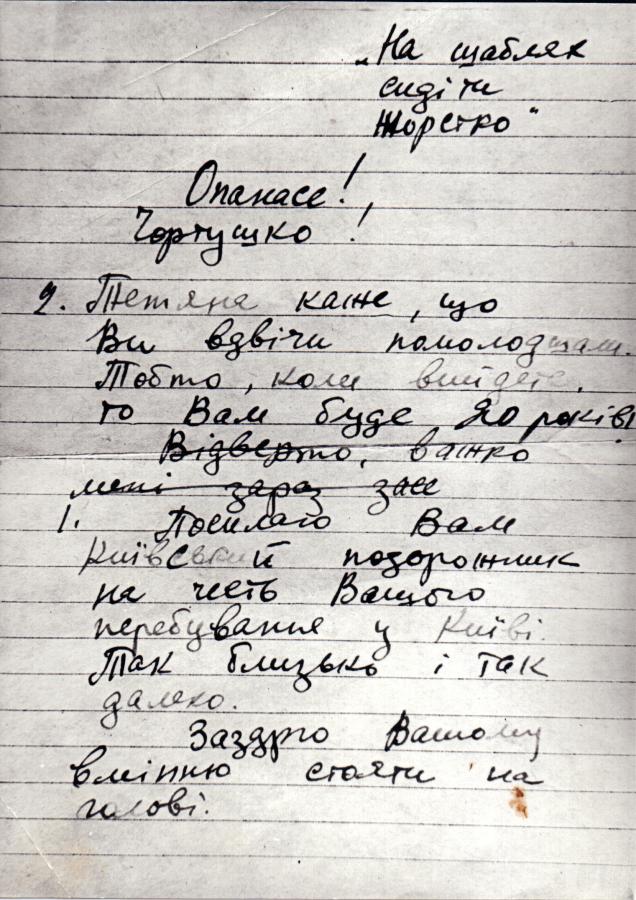 „На щаблях
сидіти
жорстко"
Опанасе!
Чортушко!
2. Тетяна каже, що
Ви вдвічи помолодшали.
Тобто, коли вийдете,
то Вам буде 20 років!
Відверто, важко
мені зараз
1. Посилаю Вам
Київський подорожник
на честь Вашого
перебування у Київі.
Так близько і так
далеко.
Заздрю Вашому
вмінню стояти на
голові.